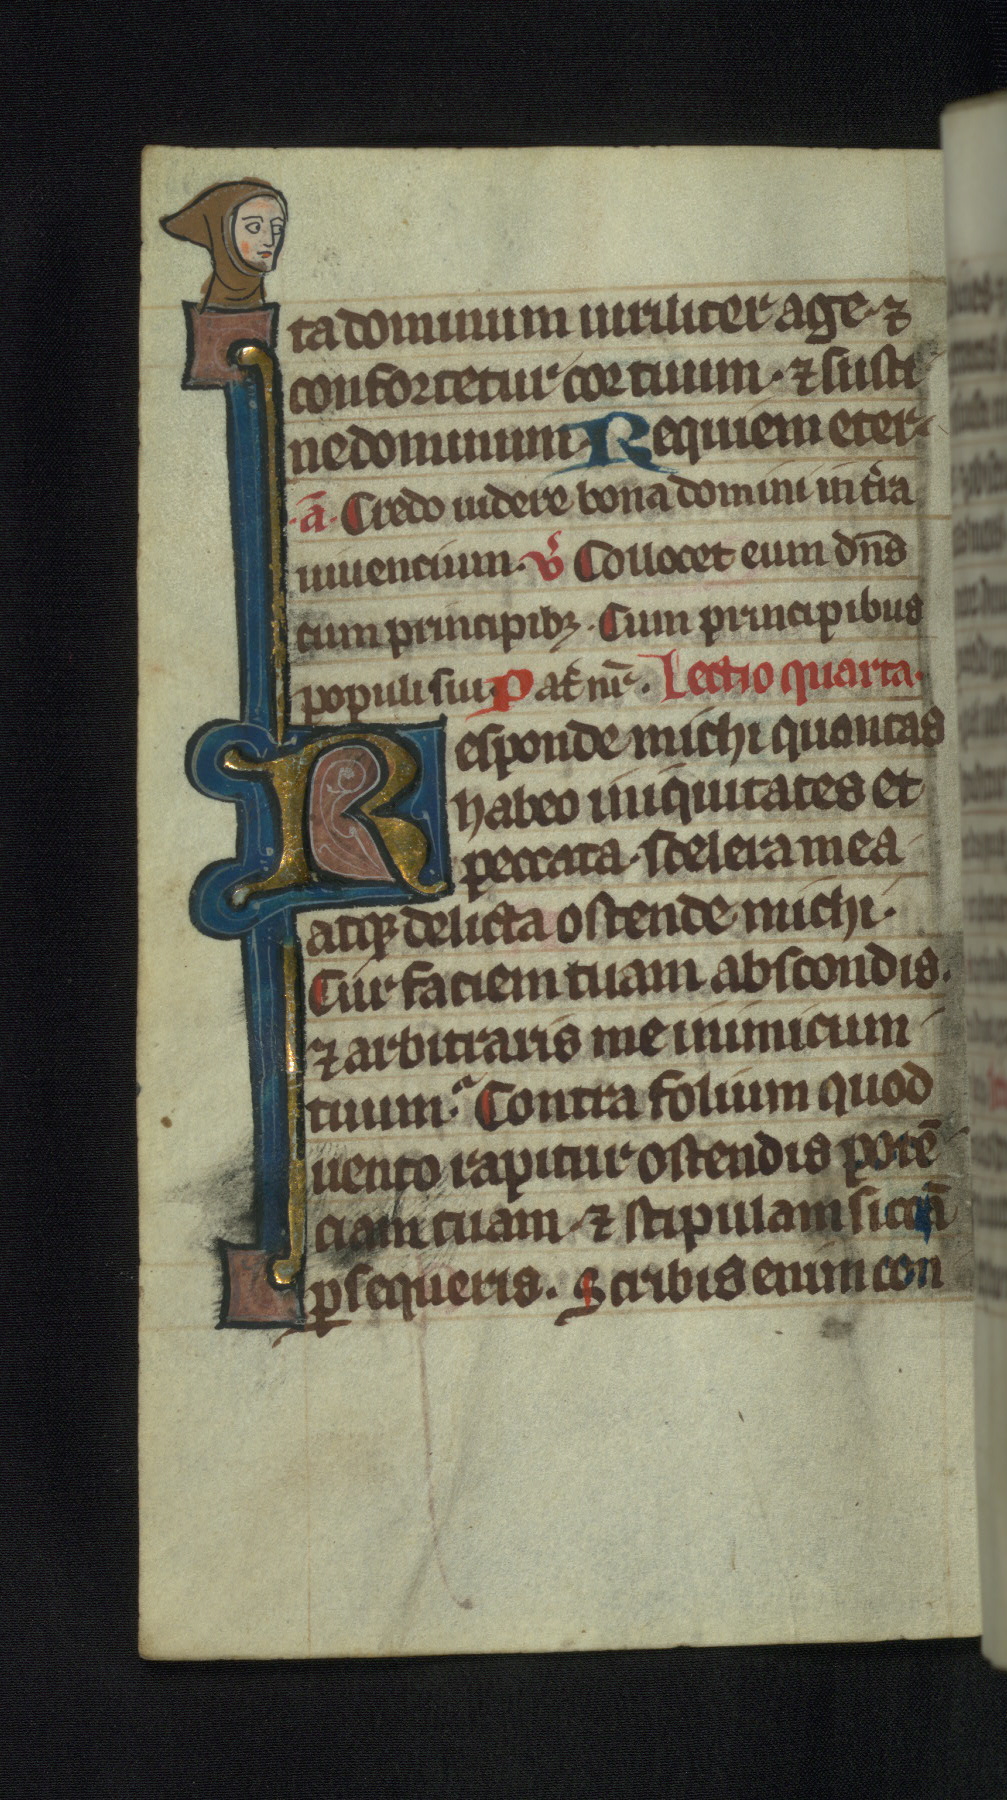 ta dominum uiriliter age ⁊
confortetur cor tuum · ⁊ susti
ne dominum Requiem eter
·a̅· Credo uidere bona domini in tr̄ra
uiuencium · v̉ Collocet eum dn̄s
cum principibꝫ · Cum principibus
populi sui · Pat̄ nr̄ · Lectio quarta ·
Responde michi quantas
habeo iniquitates et
peccata · scelera mea
atqꝫ delicta ostende michi ·
Cur faciem tuam abscondis ·
⁊ arbitraris me inimicum
tuum · Contra folium quod
uento rapitur ostendis potē
ciam tuam · ⁊ stipulam siccā
ꝑsequeris · Scribis enim con